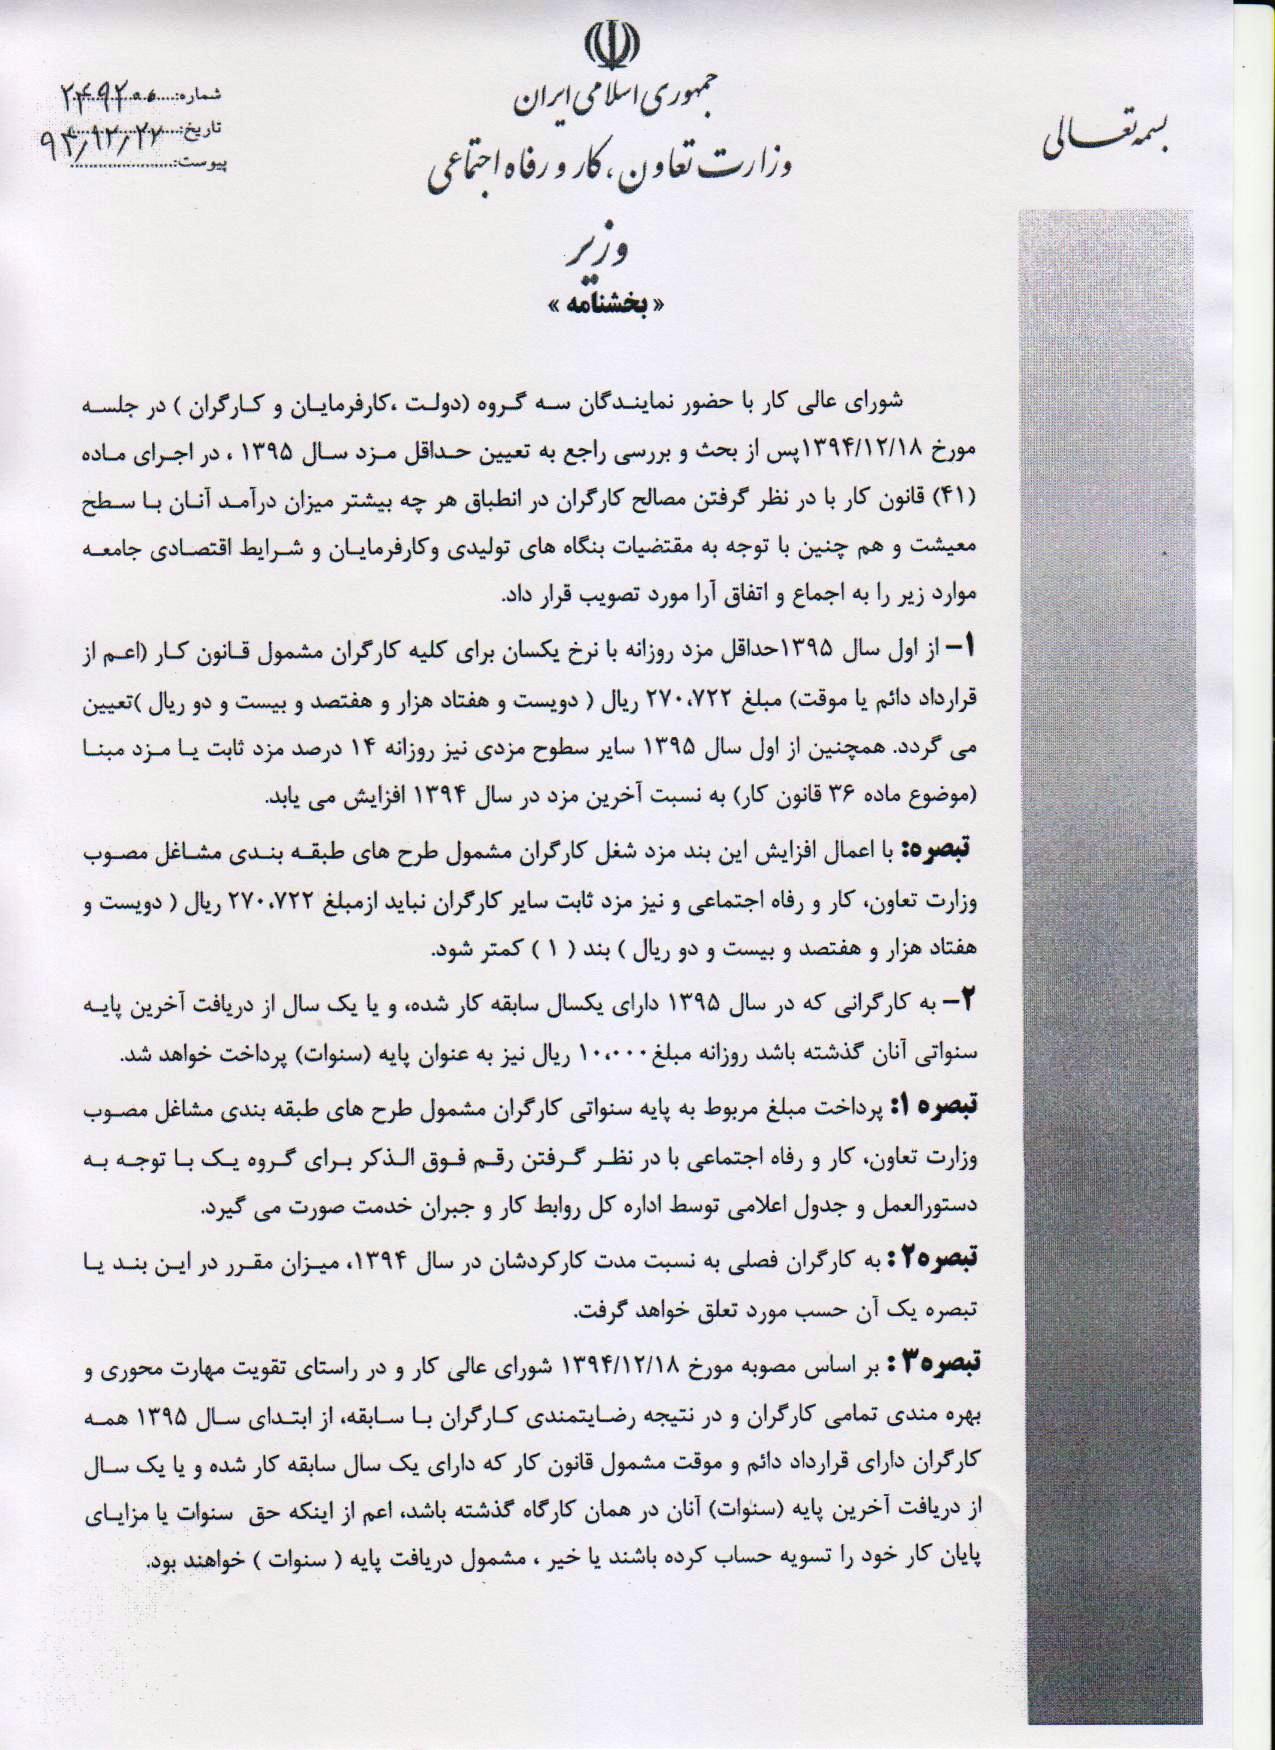 بسمه تعالی
جمهوری اسلامی ایران
وزارت تعاون، کار و رفاه اجتماعی
وزیر
شماره: ۲۴۹۲۰۰
تاریخ: ۹۴/۱۲/۲۲
پیوست:
« بخشنامه »
شورای عالی کار با حضور نمایندگان سه گروه (دولت ،کارفرمایان و کارگران ) در جلسه
مورخ ۱۳۹۴/۱۲/۱۸پس از بحث و بررسی راجع به تعیین حداقل مزد سال ۱۳۹۵ ، در اجرای ماده
(۴۱) قانون کار با در نظر گرفتن مصالح کارگران در انطباق هر چه بیشتر میزان درآمد آنان با سطح
معیشت و هم چنین با توجه به مقتضیات بنگاه های تولیدی وکارفرمایان و شرایط اقتصادی جامعه
موارد زیر را به اجماع و اتفاق آرا مورد تصویب قرار داد.
۱– از اول سال ۱۳۹۵حداقل مزد روزانه با نرخ یکسان برای کلیه کارگران مشمول قانون کار (اعم از
قرارداد دائم یا موقت) مبلغ ۲۷۰،۷۲۲ ریال ( دویست و هفتاد هزار و هفتصد و بیست و دو ریال )تعیین
می گردد. همچنین از اول سال ۱۳۹۵ سایر سطوح مزدی نیز روزانه ۱۴ درصد مزد ثابت یا مزد مبنا
(موضوع ماده ۳۶ قانون کار) به نسبت آخرین مزد در سال ۱۳۹۴ افزایش می یابد.
تبصره: با اعمال افزایش این بند مزد شغل کارگران مشمول طرح های طبقه بندی مشاغل مصوب
وزارت تعاون، کار و رفاه اجتماعی و نیز مزد ثابت سایر کارگران نباید ازمبلغ ۲۷۰،۷۲۲ ریال ( دویست و
هفتاد هزار و هفتصد و بیست و دو ریال ) بند ( ۱ ) کمتر شود.
۲– به کارگرانی که در سال ۱۳۹۵ دارای یکسال سابقه کار شده، و یا یک سال از دریافت آخرین پایه
سنواتی آنان گذشته باشد روزانه مبلغ۱۰،۰۰۰ ریال نیز به عنوان پایه (سنوات) پرداخت خواهد شد.
تبصره ۱: پرداخت مبلغ مربوط به پایه سنواتی کارگران مشمول طرح های طبقه بندی مشاغل مصوب
وزارت تعاون، کار و رفاه اجتماعی با در نظر گرفتن رقم فوق الذکر برای گروه یک با توجه به
دستورالعمل و جدول اعلامی توسط اداره کل روابط کار و جبران خدمت صورت می گیرد.
تبصره۲: به کارگران فصلی به نسبت مدت کارکردشان در سال ۱۳۹۴، میزان مقرر در این بند یا
تبصره یک آن حسب مورد تعلق خواهد گرفت.
تبصره۳: بر اساس مصوبه مورخ ۱۳۹۴/۱۲/۱۸ شورای عالی کار و در راستای تقویت مهارت محوری و
بهره مندی تمامی کارگران و در نتیجه رضایتمندی کارگران با سابقه، از ابتدای سال ۱۳۹۵ همه
کارگران دارای قرارداد دائم و موقت مشمول قانون کار که دارای یک سال سابقه کار شده و یا یک سال
از دریافت آخرین پایه (سنوات) آنان در همان کارگاه گذشته باشد، اعم از اینکه حق سنوات یا مزایای
پایان کار خود را تسویه حساب کرده باشند یا خیر ، مشمول دریافت پایه ( سنوات ) خواهند بود.